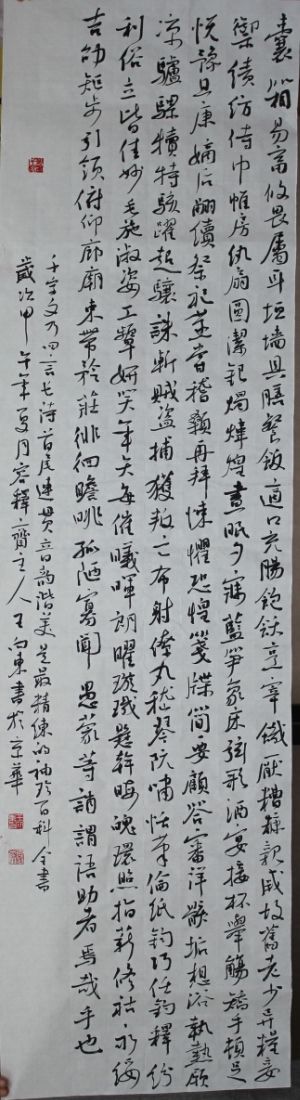 囊箱易輶攸畏屬耳垣墻具膳餐飯適口充腸飽飫烹宰饑厭糟糠親戚故舊老少异糧妾
禦績紡侍巾帷房紈扇圓潔銀燭煒煌晝眠夕寐藍笋象床弦歌酒宴接杯舉觴矯手頓足
悅豫且康嫡后嗣續祭祀蒸嘗稽顙再拜悚懼恐惶箋牒簡要顧答審詳骸垢想浴執熱願
凉驢騾犢特駭躍超驤誅斬賊盜捕獲叛亡布射僚丸嵇琴阮嘯恬筆倫紙鈞巧任釣釋紛
利俗並皆佳妙毛施淑姿工顰妍笑年矢每催曦暉朗曜璇璣懸斡晦魄環照指薪修祜永綏
吉劭矩步引領俯仰廊廟束帶矜莊徘徊瞻眺孤陋寡聞愚蒙等誚謂語助者焉哉乎也
千字文乃四言長詩首尾連貫音韵諧美是最精煉的袖珍百科全書
歲次甲午年夏月容釋齋主人王向東書於京華